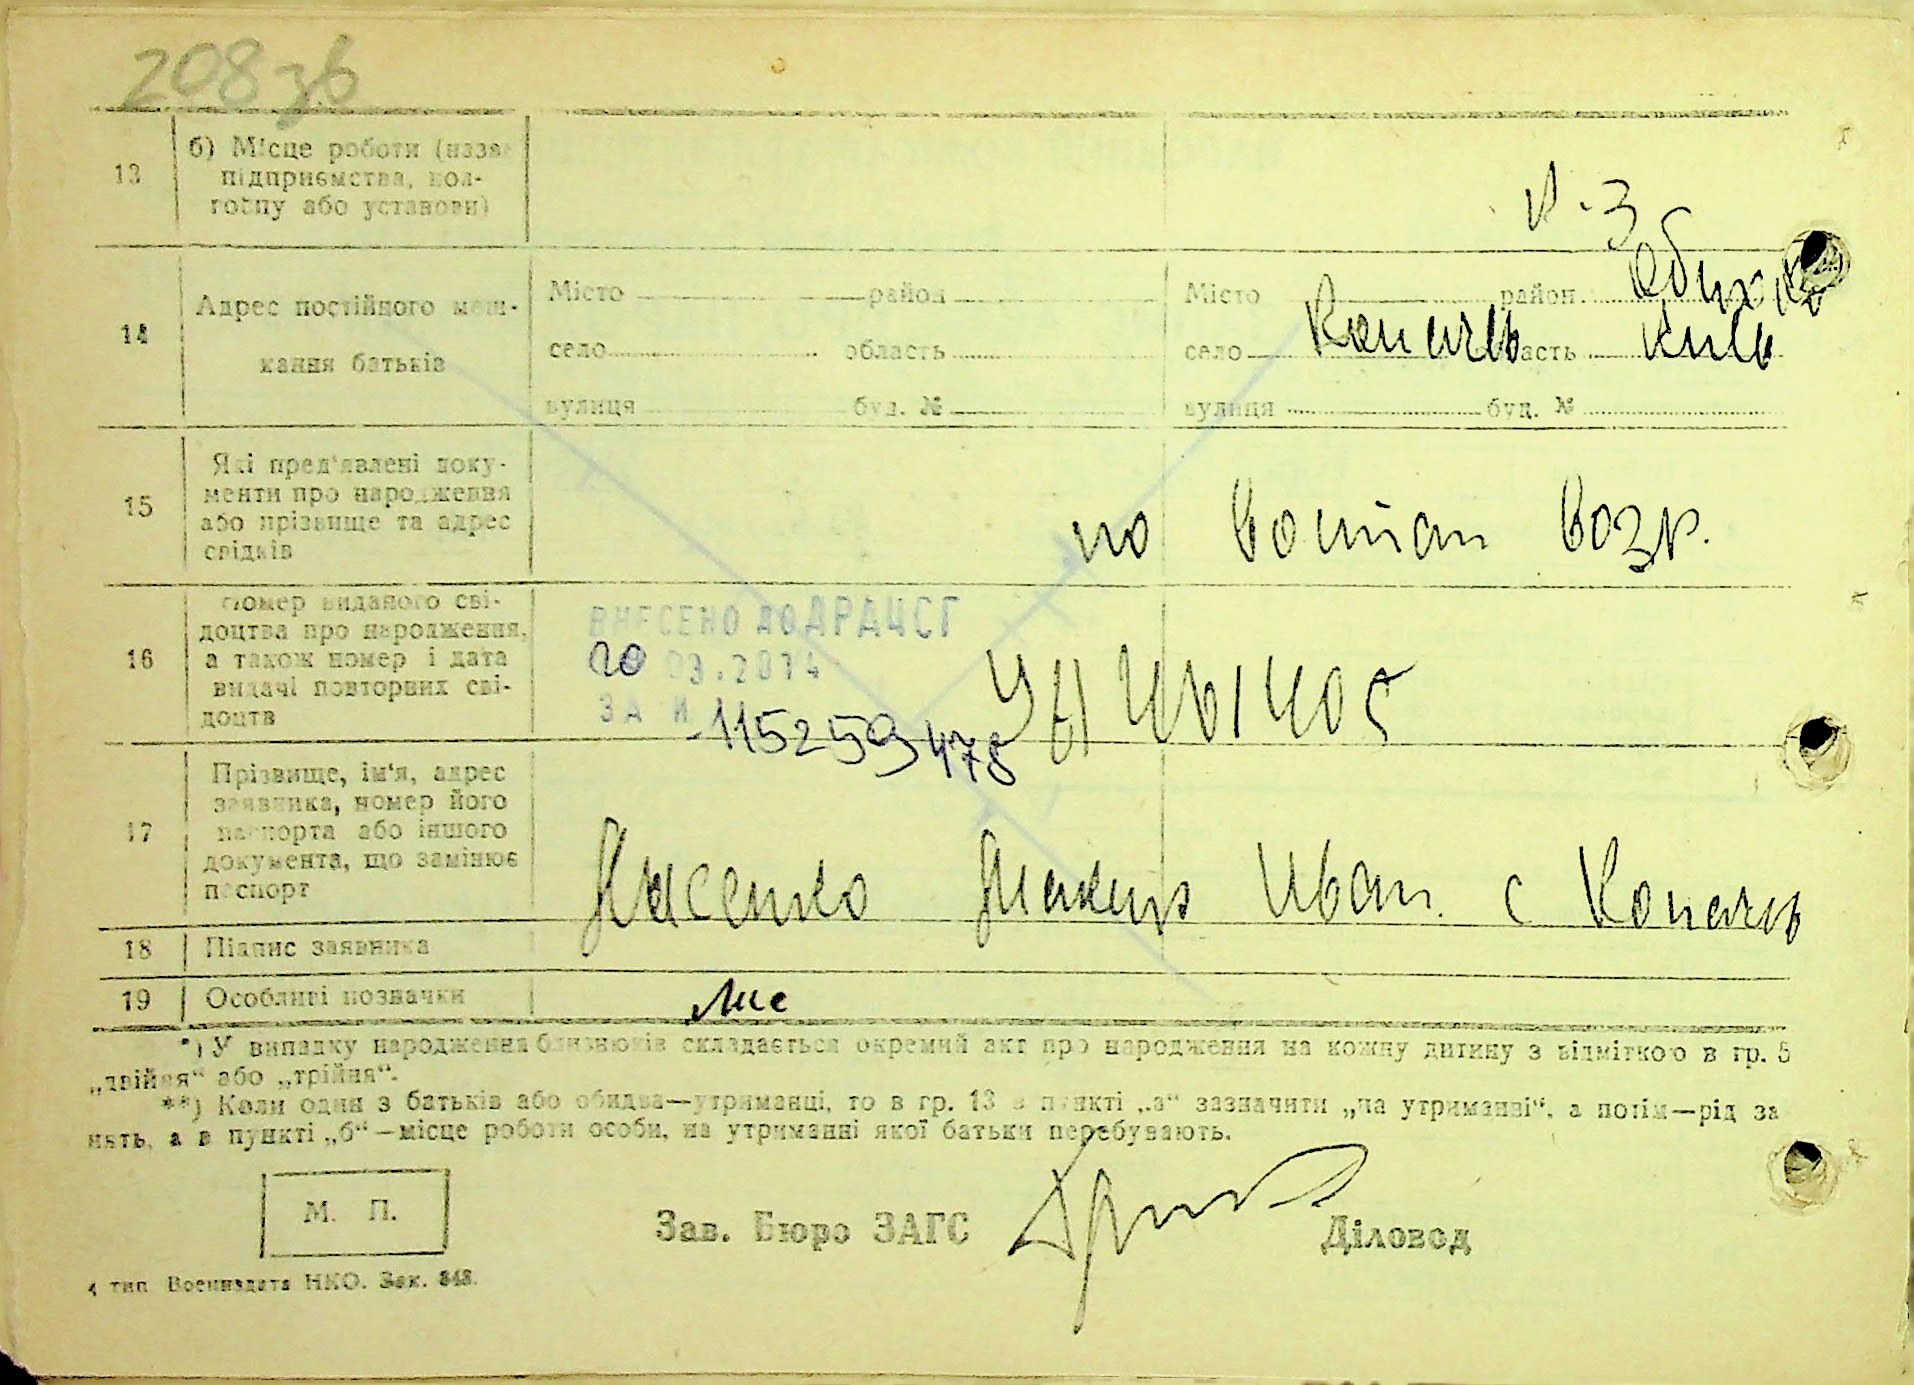 208 зв
13
б) Місце роботи (назва
підприємства, кол-
госпу або установи)
к-з
14
Адрес постійного меш-
кання батьків
Місто район
село область
вулиця буд. №
Місто район
село Копачів область Київ
вулиця буд. №
15
Які пред'явлені доку-
менти про народження
або прізвище та адрес
свідків
по возр.
16
Номер виданого сві-
доцтва про народження,
а також номер і дата
видачі повторних сві-
доцтв
ВНЕСЕНО ДО ДРАЦСГ
20 09.2014
ЗА № 115259478
17
Прізвище, ім'я, адрес
заявника, номер його
паспорта або іншого
документа, що замінює
паспорт
Лисенко Иван. с Копачів
18 Підпис заявника
19 Особливі позначки
*) У випадку народження близнюків складається окремий акт про народження на кожну дитину з відміткою в гр. 5
„двійня“ або „трійня“.
**) Коли один з батьків або обидва—утриманці, то в гр. 13 в пункті „а“ зазначити „на утриманні“, а потім—рід за
нять, а в пункті „б“—місце роботи особи, на утриманні якої батьки перебувають.
М. П.
Зав. Бюро ЗАГС
Діловод
4 тип. Воениздата НКО. Зак. 348.